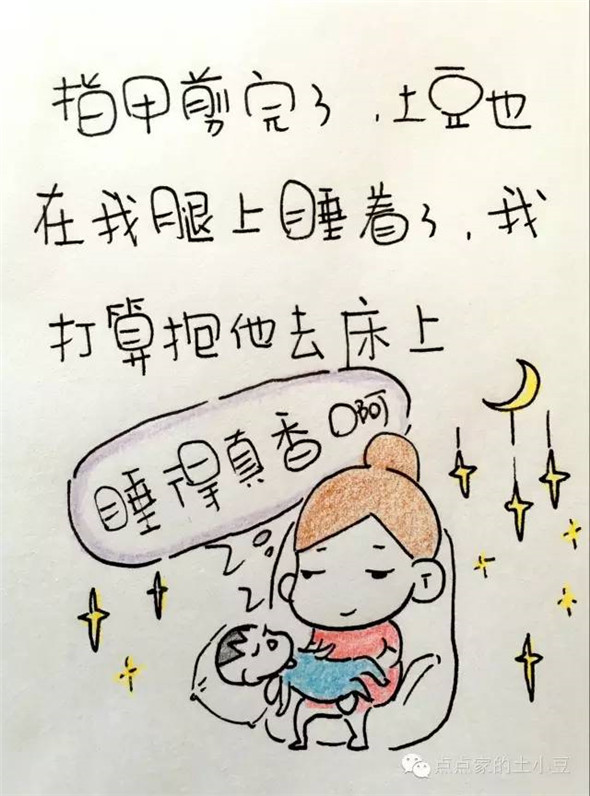 指甲剪完了,土豆也
在我腿上睡着了,我
打算抱他去床上
睡得真香啊
zzz
点点家的土小豆